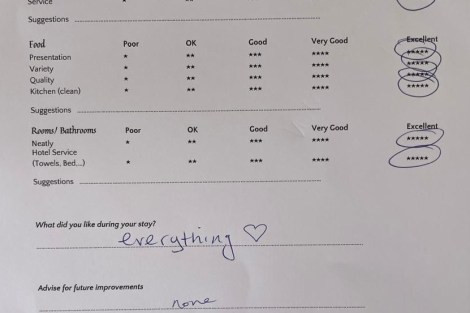 Service * ** *** ****
Suggestions
Food Poor OK Good Very Good Excellent
Presentation * ** *** **** *****
Variety * ** *** **** *****
Quality * ** *** **** *****
Kitchen (clean) * ** *** **** *****
Suggestions
Rooms/ Bathrooms Poor OK Good Very Good Excellent
Neatly * ** *** **** *****
Hotel Service
(Towels, Bed...) * ** *** **** *****
Suggestions
What did you like during your stay?
everything ♡
Advise for future improvements
none